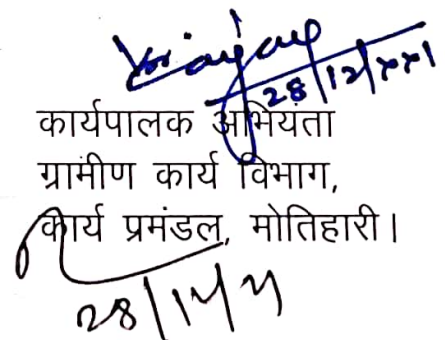 28/12/2021
कार्यपालक अभियंता
ग्रामीण कार्य विभाग,
कार्य प्रमंडल, मोतिहारी।
28/12/21